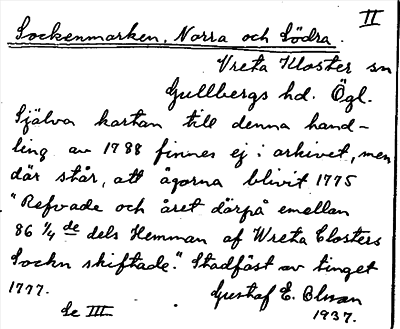 II
Sockenmarken, Norra och Södra.
Vreta Kloster sn
Gullbergs hd. Ögl.
Själva kartan till denna hand-
ling av 1788 finnes ej i arkivet, men
där står, att ägorna blivit 1775
"Refvade och året därpå emellan
86 1/4 de dels Hemman af Wreta Closters
Sockn skiftade." Stadfäst av tinget
1777.
Gustaf E. Olsson
Se III.
1937.